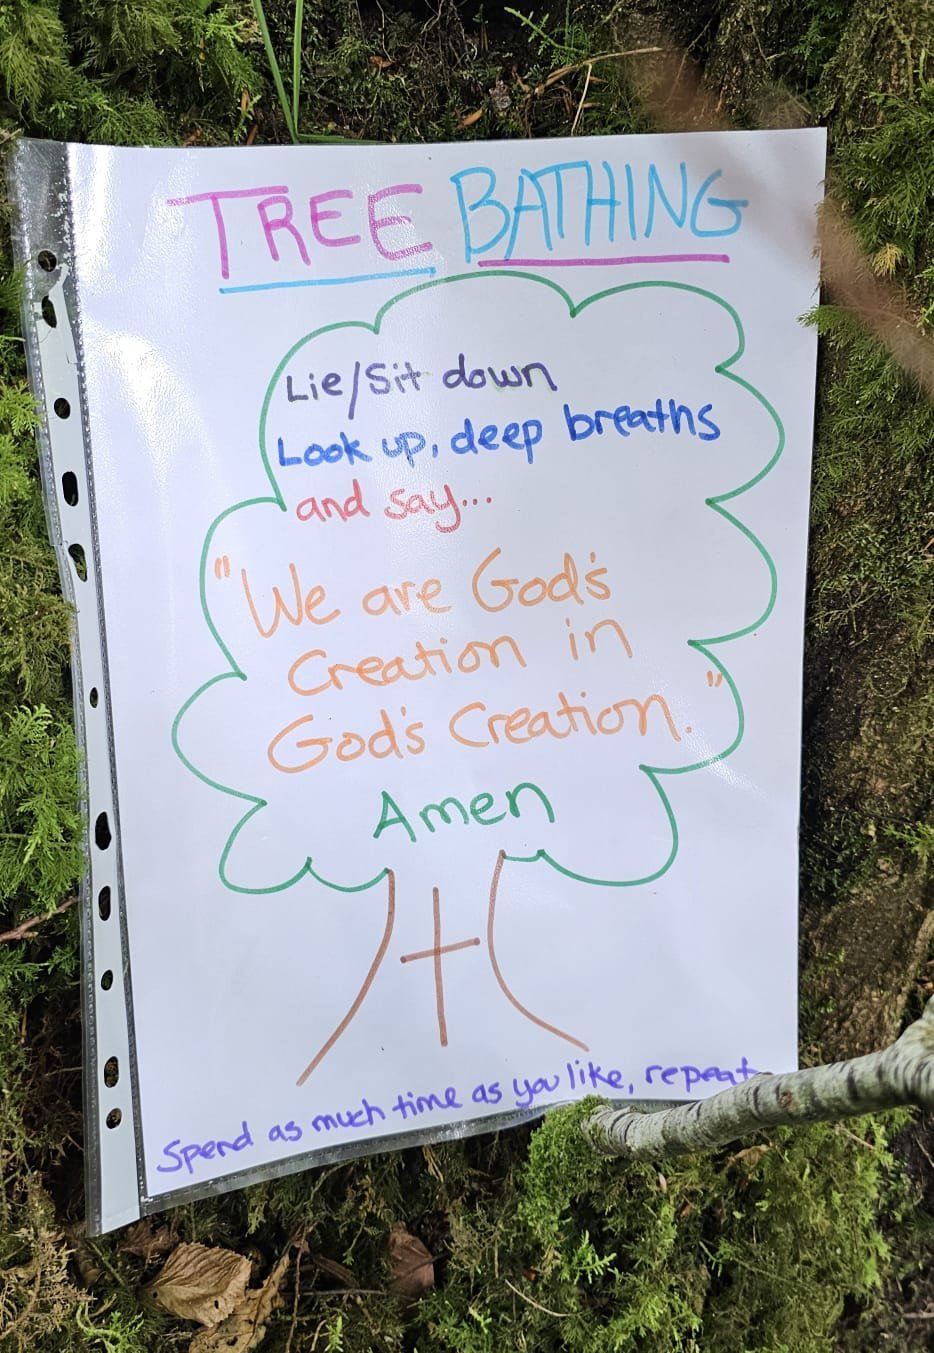 TREE BATHING
Lie/Sit down
Look up, deep breaths
and say...
"We are God's
Creation in
God's Creation."
Amen
Spend as much time as you like, repeat